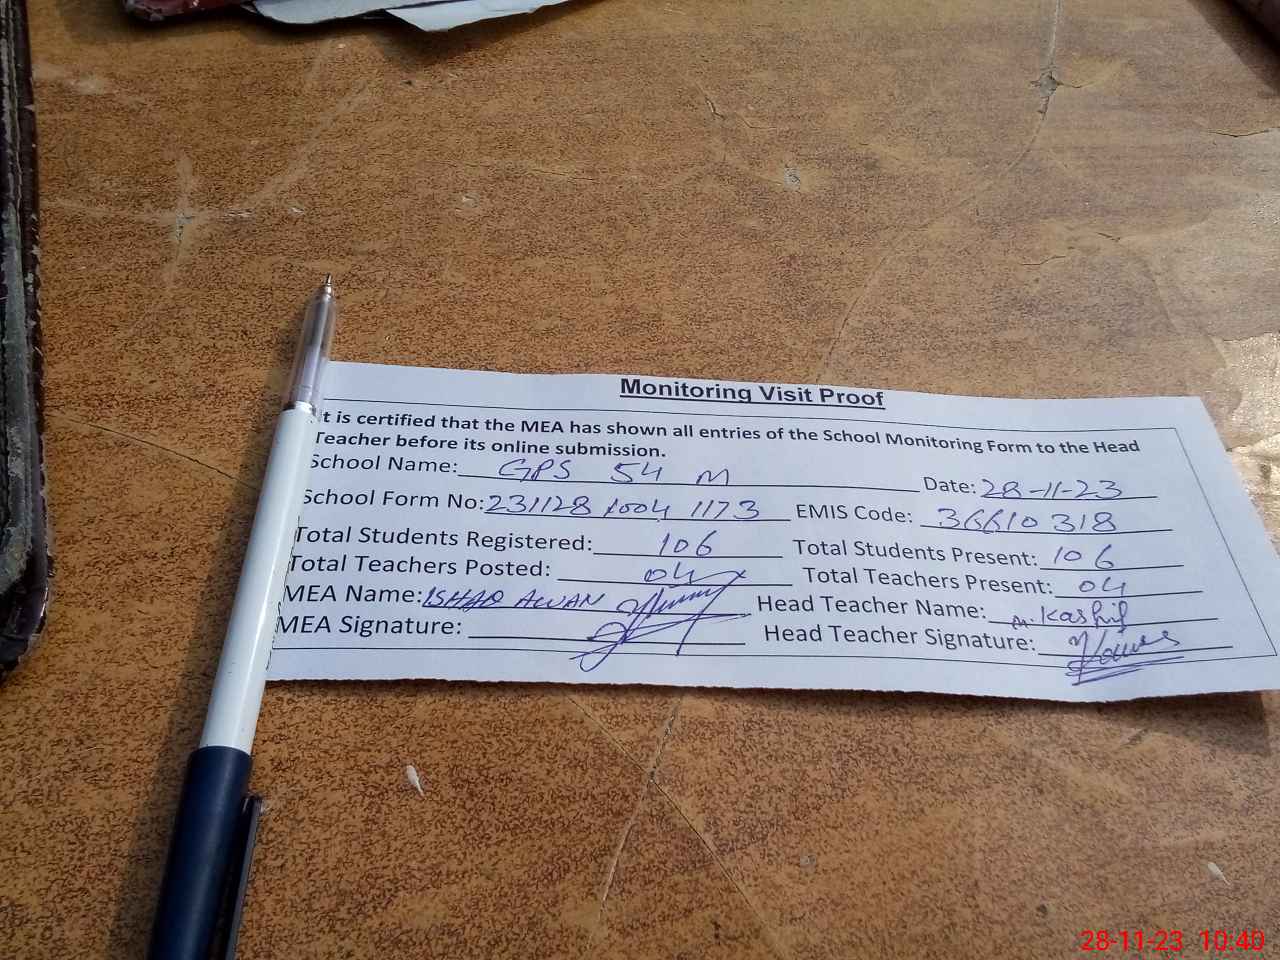 Monitoring Visit Proof
It is certified that the MEA has shown all entries of the School Monitoring Form to the Head
Teacher before its online submission.
School Name: GPS 54 M Date: 28-11-23
School Form No: 231128 1004 1173 EMIS Code: 36610318
Total Students Registered: 106 Total Students Present: 106
Total Teachers Posted: 04 Total Teachers Present: 04
MEA Name: ISHAQ AWAN Head Teacher Name: M. Kashif
MEA Signature: Head Teacher Signature:
28-11-23 10:40